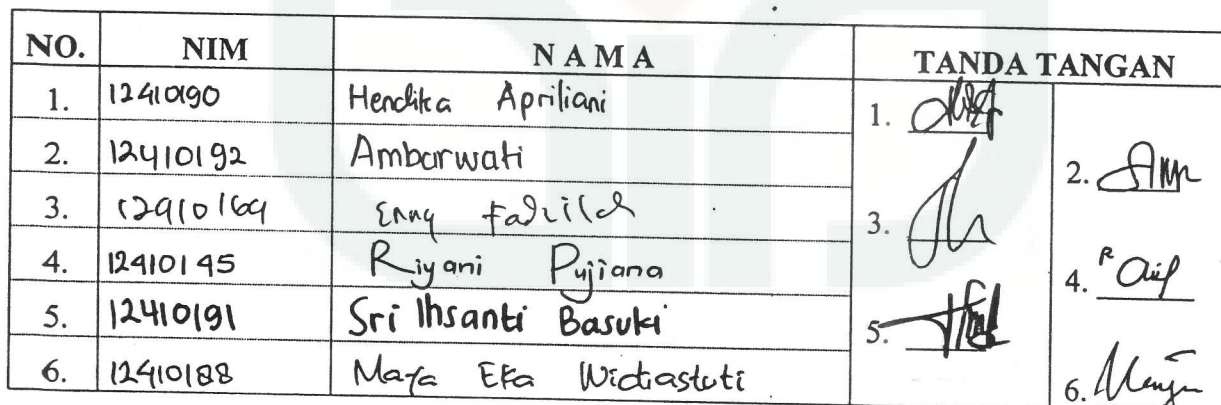 NO. NIM NAMA TANDA TANGAN
1. 12410190 Hendika Apriliani 1.
2. 12410192 Ambarwati 2.
3. 12410169 Enny Fadzilah 3.
4. 12410145 Riyani Pujiana 4.
5. 12410191 Sri Ihsanti Basuki 5.
6. 12410188 Maya Eka Widiastuti 6.